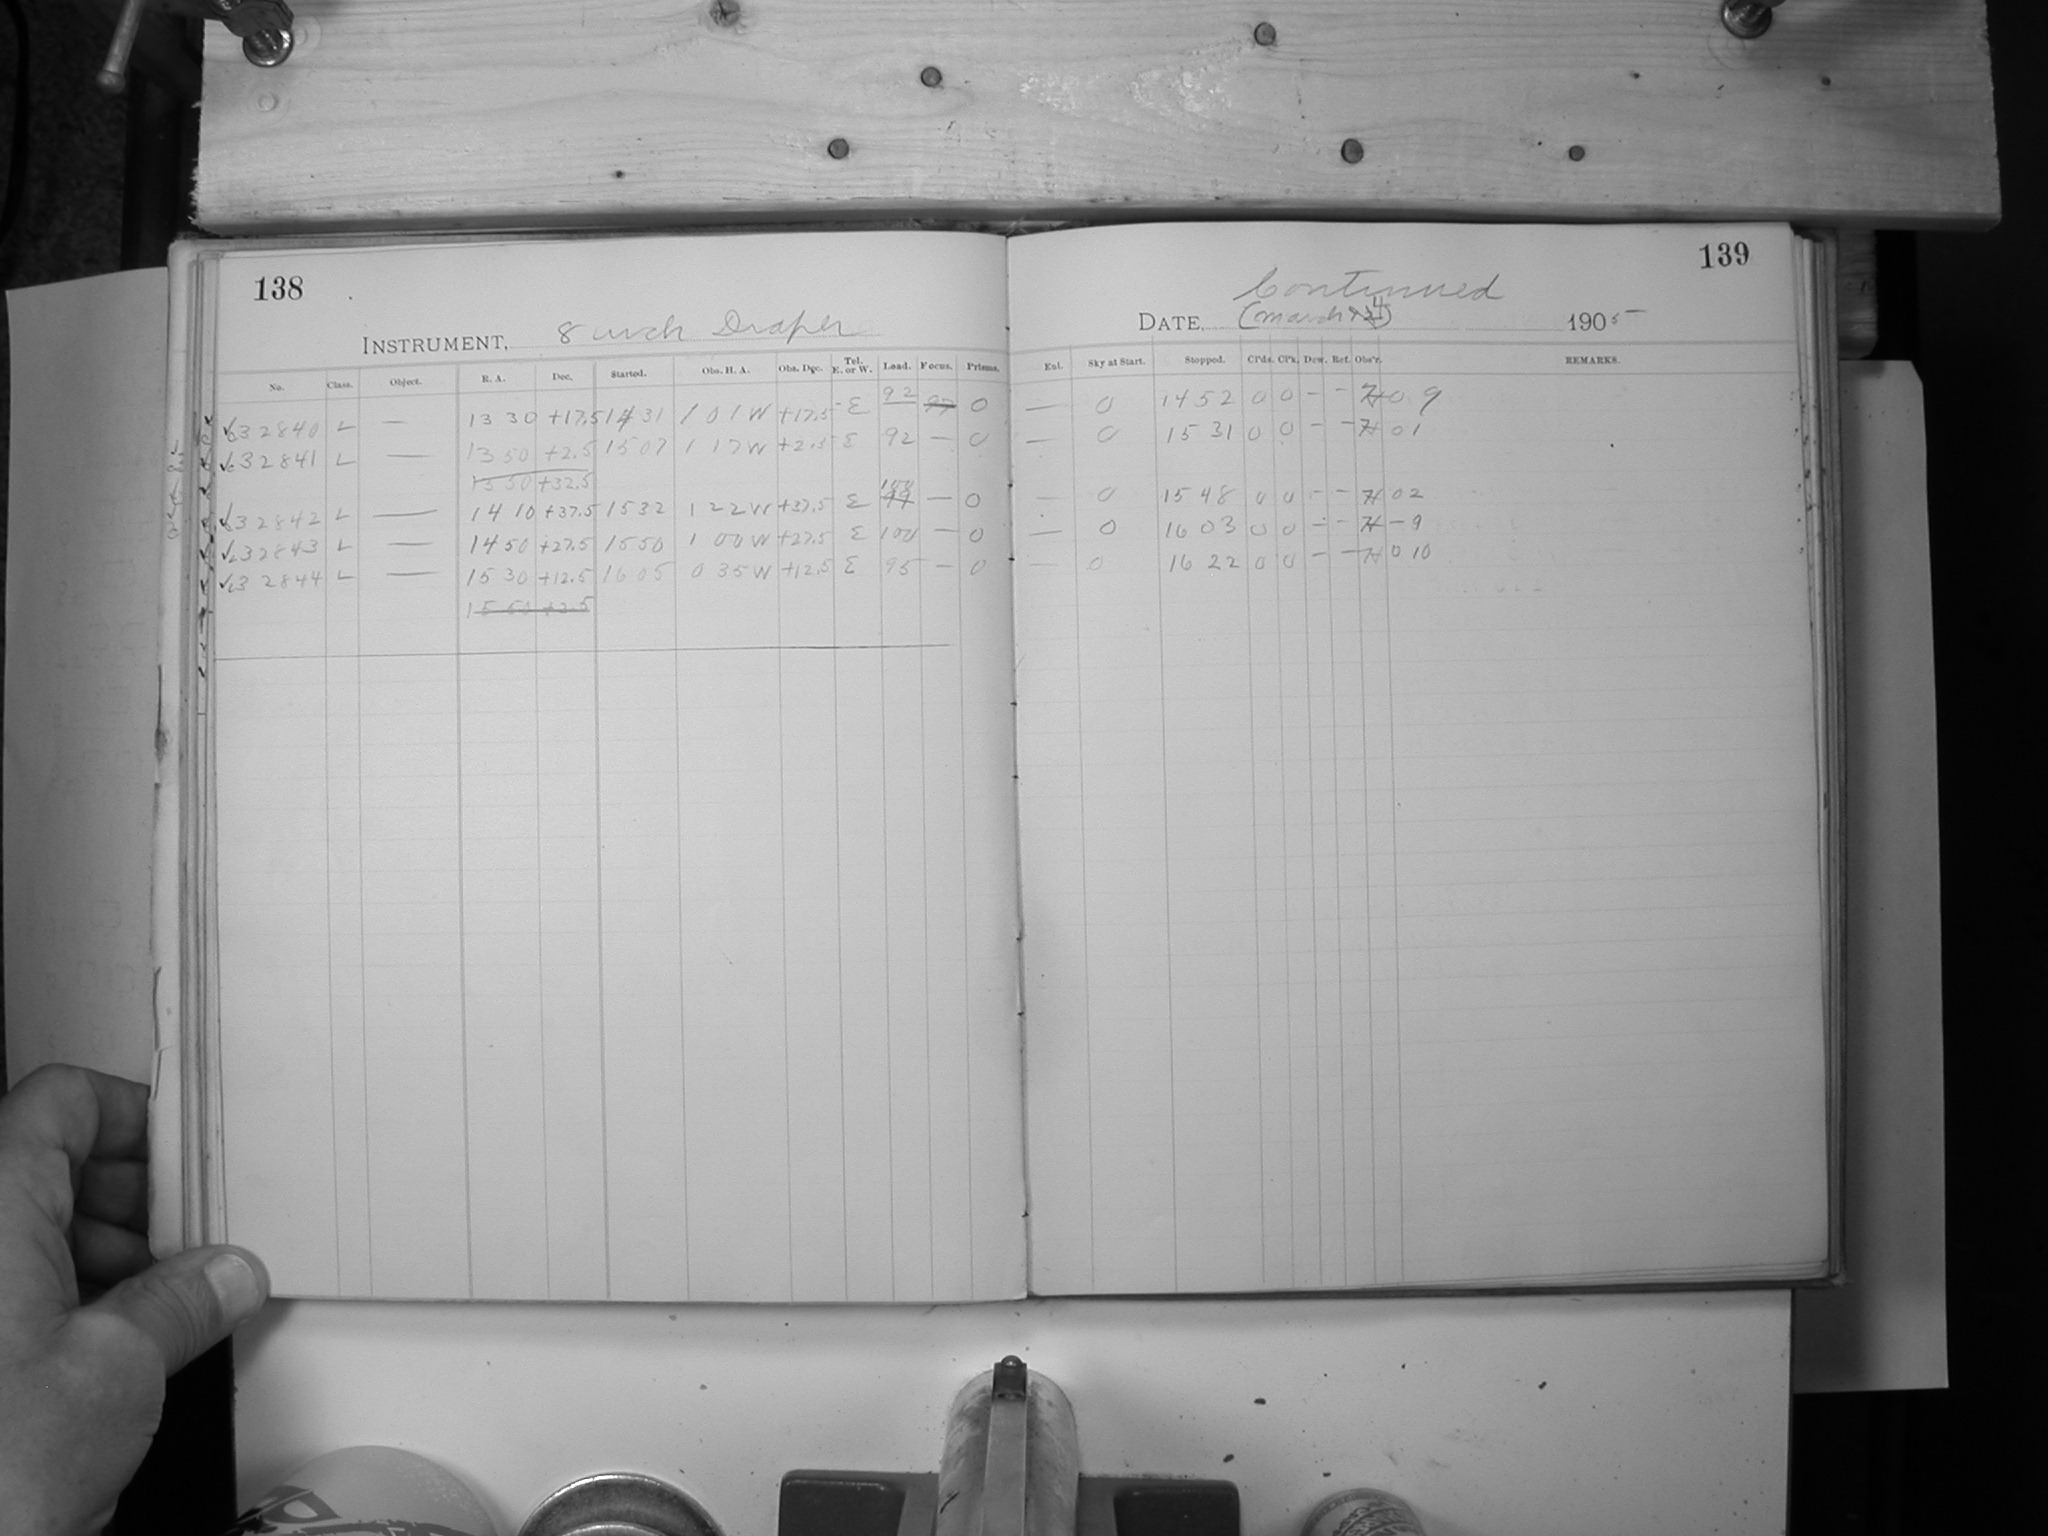 138
INSTRUMENT, 8 inch Draper
No. Class. Object. R. A. Dec. Started. Obs. H. A. Obs. Dec. Tel. E. or W. Load. Focus. Prisms.
32840 L — 13 30 +17.5 14 31 1 01 W +17.5 E 92 0
32841 L — 13 50 +2.5 15 07 1 17 W +2.5 E 92 — 0
+32.5
32842 L — 14 10 +37.5 15 32 1 22 W +37.5 E 100 — 0
32843 L — 14 50 +27.5 15 50 1 00 W +27.5 E 100 — 0
32844 L — 15 30 +12.5 16 05 0 35 W +12.5 E 95 — 0
15 50 +2.5
139
Continued
DATE, (March 4) 1905
Exl. Sky at Start. Stopped. Cl'ds. Cl'k. Dew. Ref. Obs'r. REMARKS.
— 0 14 52 0 0 - - H 0 9
— 0 15 31 0 0 - - H 01
— 0 15 48 0 0 - - H 02
— 0 16 03 0 0 - - H - 9
— 0 16 22 0 0 - - H 0 10